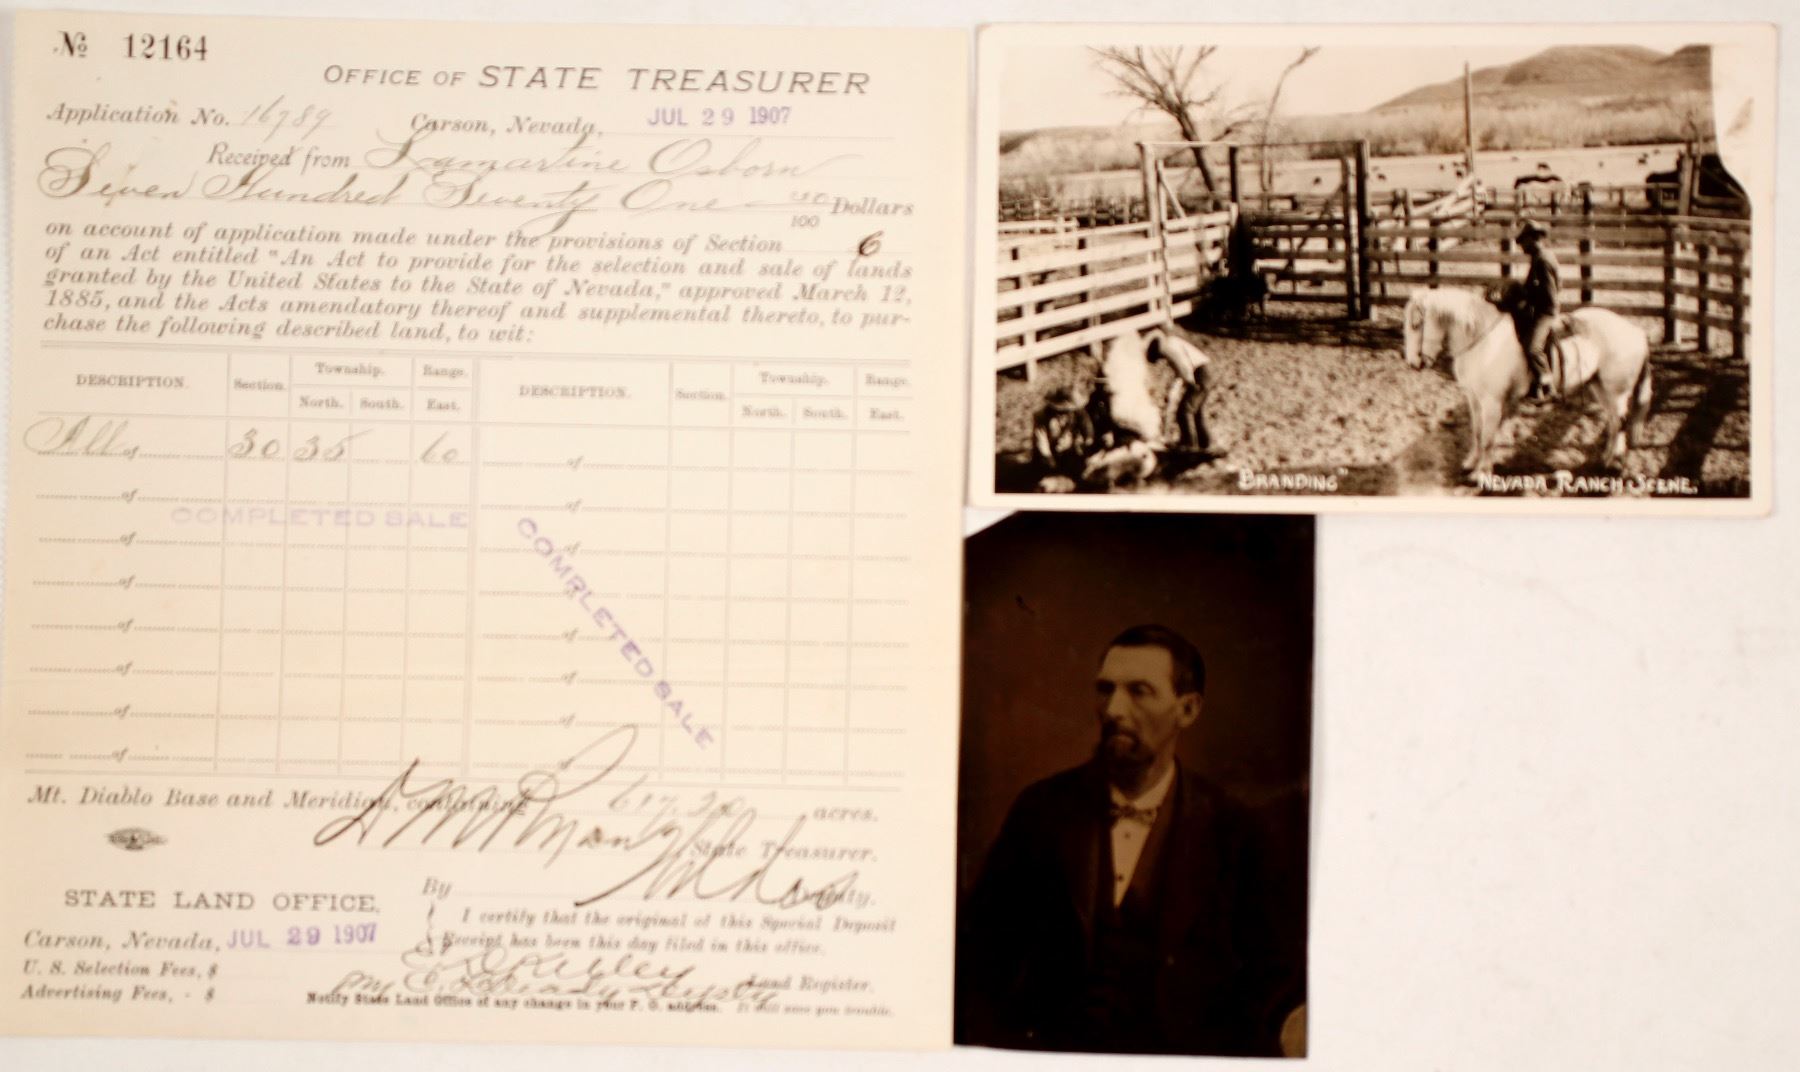 № 12164
OFFICE OF STATE TREASURER
Application No. 16789 Carson, Nevada, JUL 29 1907
Received from Lamartine Osborn
Seven Hundred Seventy One 50/100 Dollars
on account of application made under the provisions of Section 6
of an Act entitled "An Act to provide for the selection and sale of lands
granted by the United States to the State of Nevada," approved March 12,
1885, and the Acts amendatory thereof and supplemental thereto, to pur-
chase the following described land, to wit:
DESCRIPTION. Section. Township. Range. DESCRIPTION. Section. Township. Range.
North. South. East. North. South. East.
All of 30 35 60 of
of of
COMPLETED SALE
COMPLETED SALE
of of
of of
of of
of of
of of
of of
Mt. Diablo Base and Meridian, containing 617.20 acres.
State Treasurer.
By Deputy.
STATE LAND OFFICE.
Carson, Nevada, JUL 29 1907
U. S. Selection Fees, $
Advertising Fees, - $
I certify that the original of this Special Deposit
Receipt has been this day filed in this office.
E. D. Kelley
Land Register.
Deputy
Notify State Land Office of any change in your P. O. address. It will save you trouble.
"BRANDING" NEVADA RANCH SCENE.